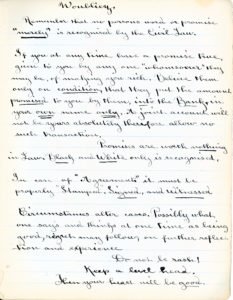 Remember that no persons word or promise
"merely" is recognised by the Civil Law.
If you at any time have a promise true,
given to you by any one "whomsoever" they
may be, of making you rich, believe them
only on condition, that they put the amount
promised to you by them, into the Bank in
your own name only. A joint account will
not be yours absolutely therefore allow no
such transaction.
Promises are worth nothing
in Law, Black and White only is recognised.
In case of "Agreements" it must be
properly "Stamped, Signed, and Witnessed
Circumstances alter cases. Possibly what
one says and thinks at one time as being
good, regret may follow on further reflec-
tion and experience
Do not be rash!
Keep a level head.
Then your heart will be good.